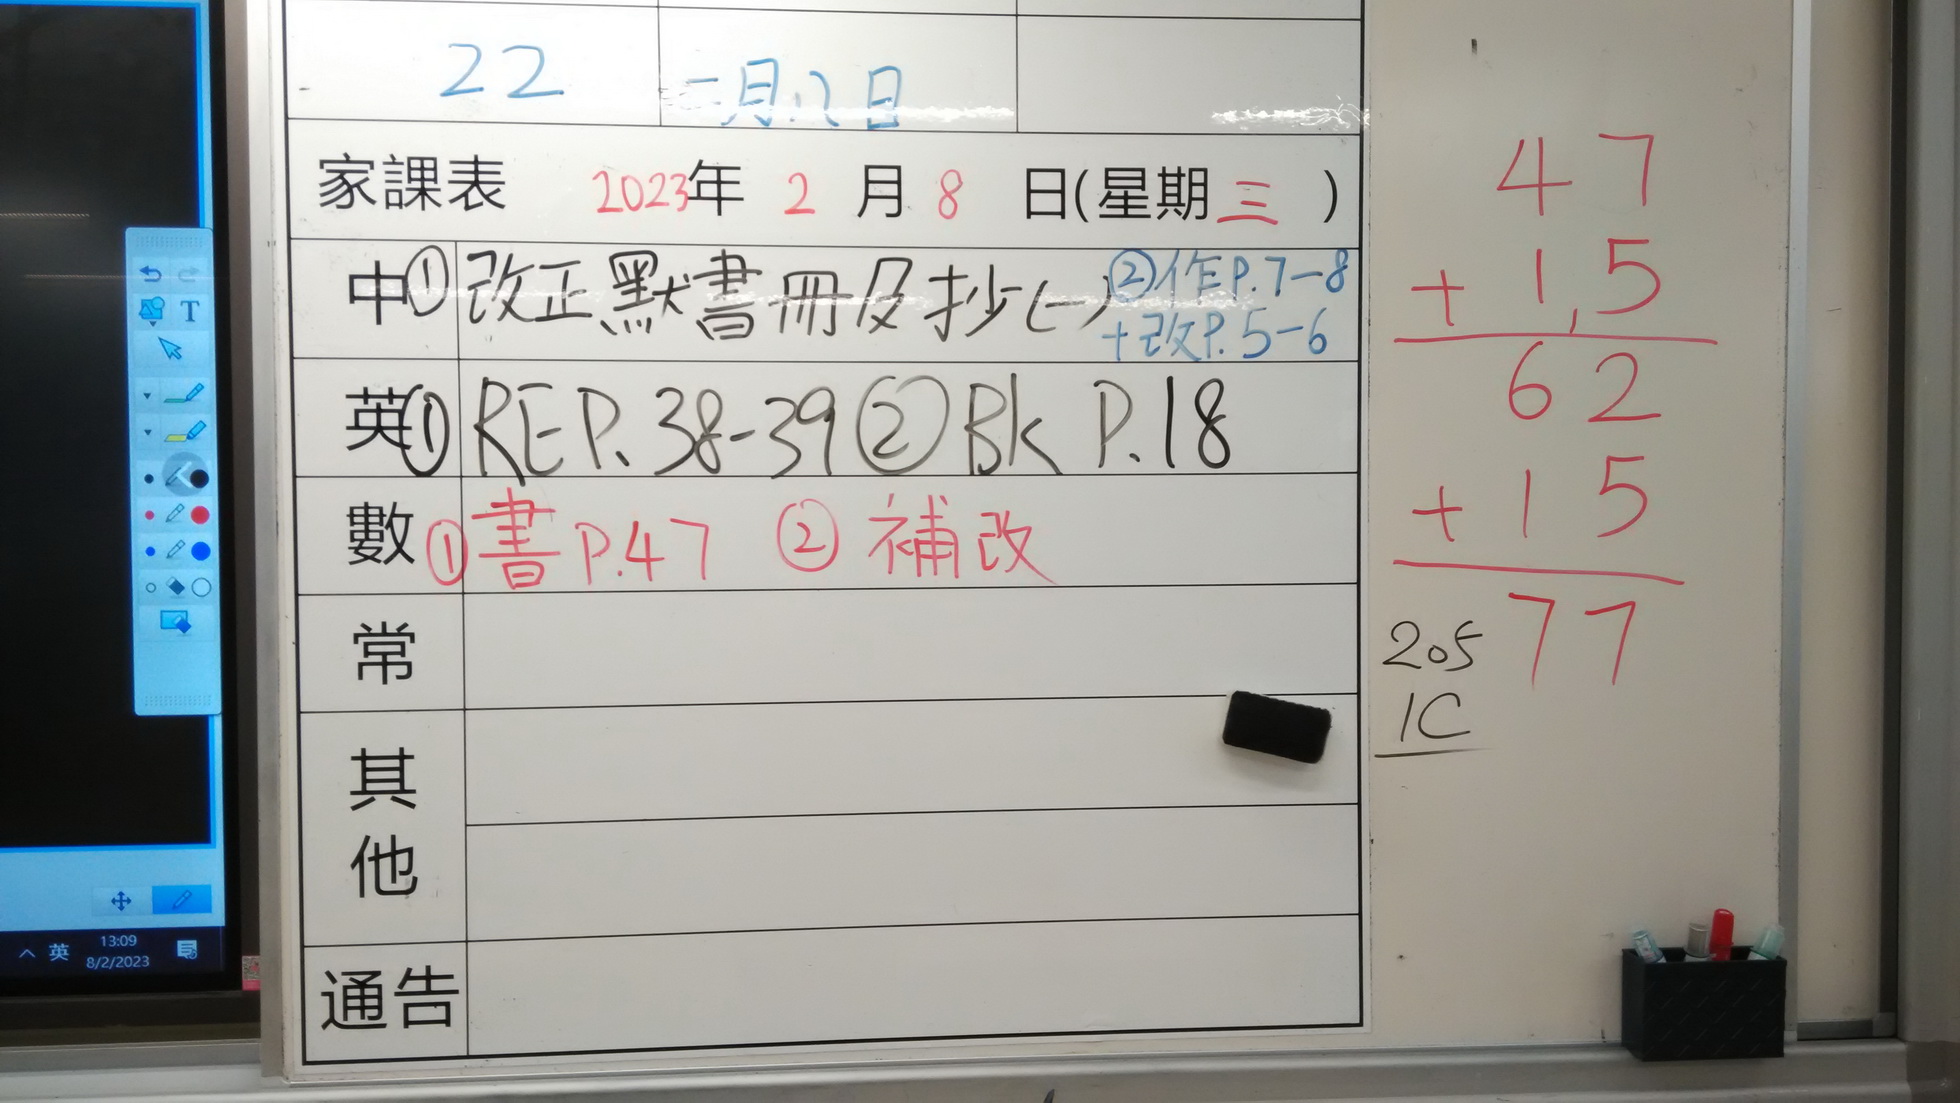 22 二月八日
家課表 2023年 2 月 8 日(星期三)
中 ①改正默書冊及抄(一) ②作P.7-8
+改P.5-6
英 ①REP.38-39 ②Bk P.18
數 ①書P.47 ②補改
常
其他
通告
47
+15
62
+15
77
205
1C
T
英
13:09
8/2/2023